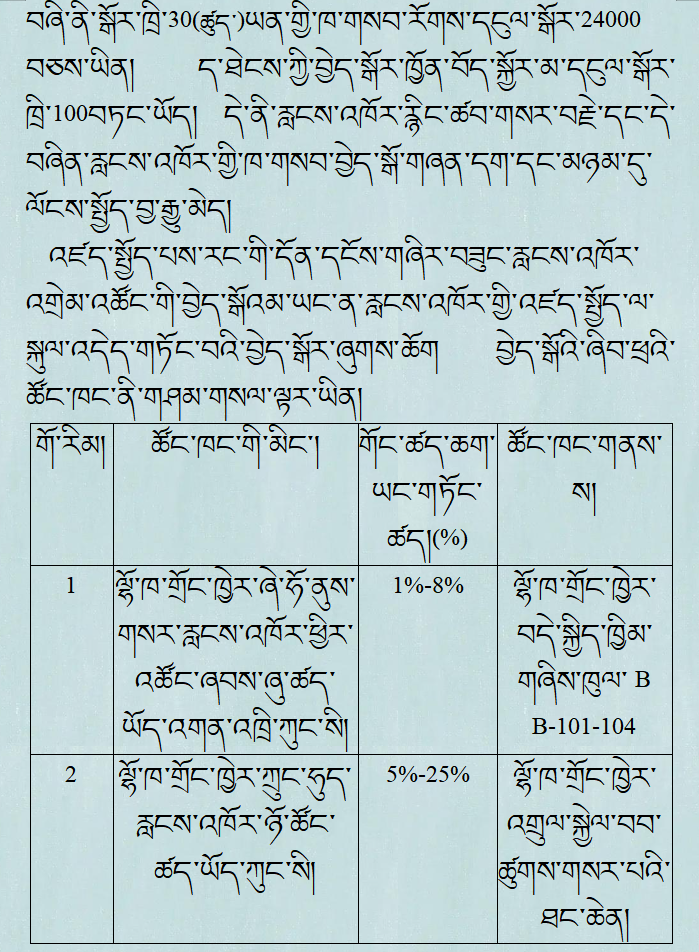 བཞི་ནི་སྒོར་ཁྲི་30(ཚུད་)ཡན་གྱི་ཁ་གསབ་རོགས་དངུལ་སྒོར་24000
བཅས་ཡིན། ད་ཐེངས་ཀྱི་བྱེད་སྒོར་ཁྱོན་བོད་སྐྱོར་མ་དངུལ་སྒོར་
ཁྲི་100བཏང་ཡོད། དེ་ནི་རླངས་འཁོར་རྙིང་ཚབ་གསར་བརྗེ་དང་དེ་
བཞིན་རླངས་འཁོར་གྱི་ཁ་གསབ་བྱེད་སྒོ་གཞན་དག་དང་མཉམ་དུ་
ལོངས་སྤྱོད་བྱ་རྒྱུ་མེད།
འཛད་སྤྱོད་པས་རང་གི་དོན་དངོས་གཞིར་བཟུང་རླངས་འཁོར་
འགྲེམ་འཚོང་གི་བྱེད་སྒོའམ་ཡང་ན་རླངས་འཁོར་གྱི་འཛད་སྤྱོད་ལ་
སྐུལ་འདེད་གཏོང་བའི་བྱེད་སྒོར་ཞུགས་ཆོག བྱེད་སྒོའི་ཞིབ་ཕྲའི་
ཚོང་ཁང་ནི་གཤམ་གསལ་ལྟར་ཡིན།
གོ་རིམ། ཚོང་ཁང་གི་མིང་། གོང་ཚད་ཆག་ ཚོང་ཁང་གནས་
ཡང་གཏོང་ ས།
ཚད།(%)
1 ལྷོ་ཁ་གྲོང་ཁྱེར་ཞེ་ཧོ་ནུས་ 1%-8% ལྷོ་ཁ་གྲོང་ཁྱེར་
གསར་རླངས་འཁོར་ཕྱིར་ བདེ་སྐྱིད་ཁྱིམ་
འཚོང་ཞབས་ཞུ་ཚད་ གཞིས་ཁུལ་ B
ཡོད་འགན་འཁྲི་ཀུང་སི། B-101-104
2 ལྷོ་ཁ་གྲོང་ཁྱེར་ཀྲུང་ཧུད་ 5%-25% ལྷོ་ཁ་གྲོང་ཁྱེར་
རླངས་འཁོར་ཉོ་ཚོང་ འགྲུལ་སྐྱེལ་བབ་
ཚད་ཡོད་ཀུང་སི། ཚུགས་གསར་པའི་
ཐང་ཆེན།